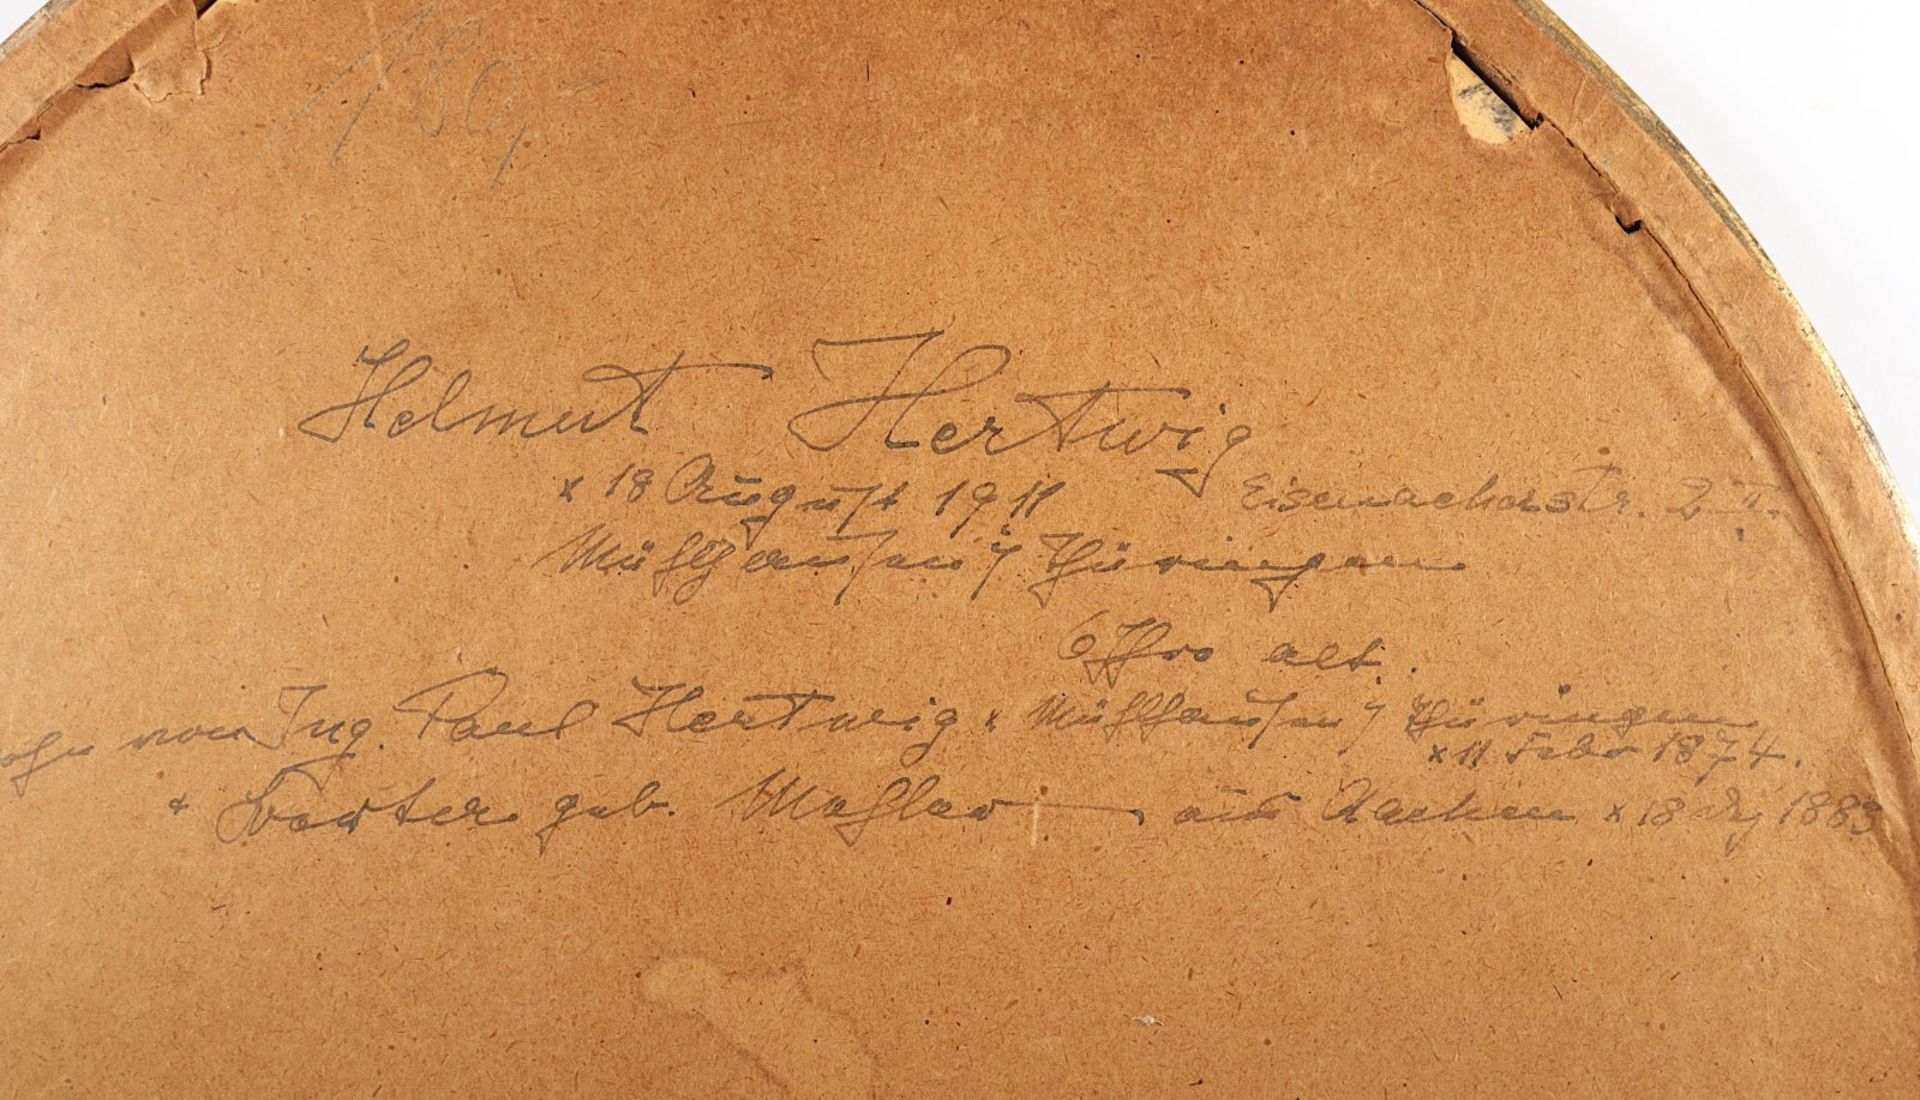 130,-
Helmut Hertwig
x 18 August 1911 Eisenacherstr. 2 II.
Mühlhausen i/ Thüringen
6 Jhre alt.
von Ing. Paul Hertwig x Mühlhausen i/ Thüringen
x 11 Febr 1874.
geb. Mahler aus Aachen x 18 1883